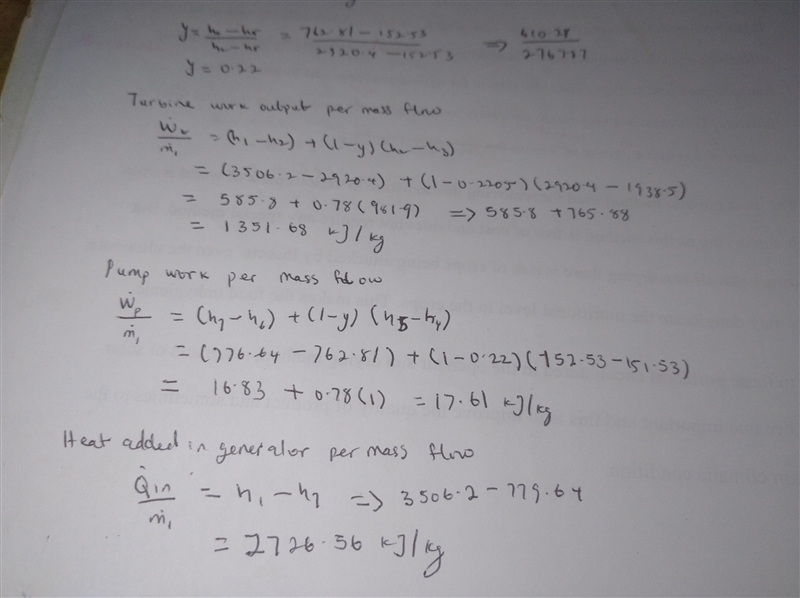 y = h₆ - h₅ / h₂ - h₅ = 762.81 - 152.53 / 2920.4 - 152.53 => 610.28 / 2767.87
y = 0.22
Turbine work output per mass flow
Ẇₜ / ṁ₁ = (h₁ - h₂) + (1 - y)(h₂ - h₃)
= (3506.2 - 2920.4) + (1 - 0.2205)(2920.4 - 1938.5)
= 585.8 + 0.78(981.9) => 585.8 + 765.88
= 1351.68 kJ/kg
Pump work per mass flow
Ẇₚ / ṁ₁ = (h₇ - h₆) + (1 - y)(h₅ - h₄)
= (776.64 - 762.81) + (1 - 0.22)(152.53 - 151.53)
= 16.83 + 0.78(1) = 17.61 kJ/kg
Heat added in generator per mass flow
Q̇in / ṁ₁ = h₁ - h₇ => 3506.2 - 779.64
= 2726.56 kJ/kg